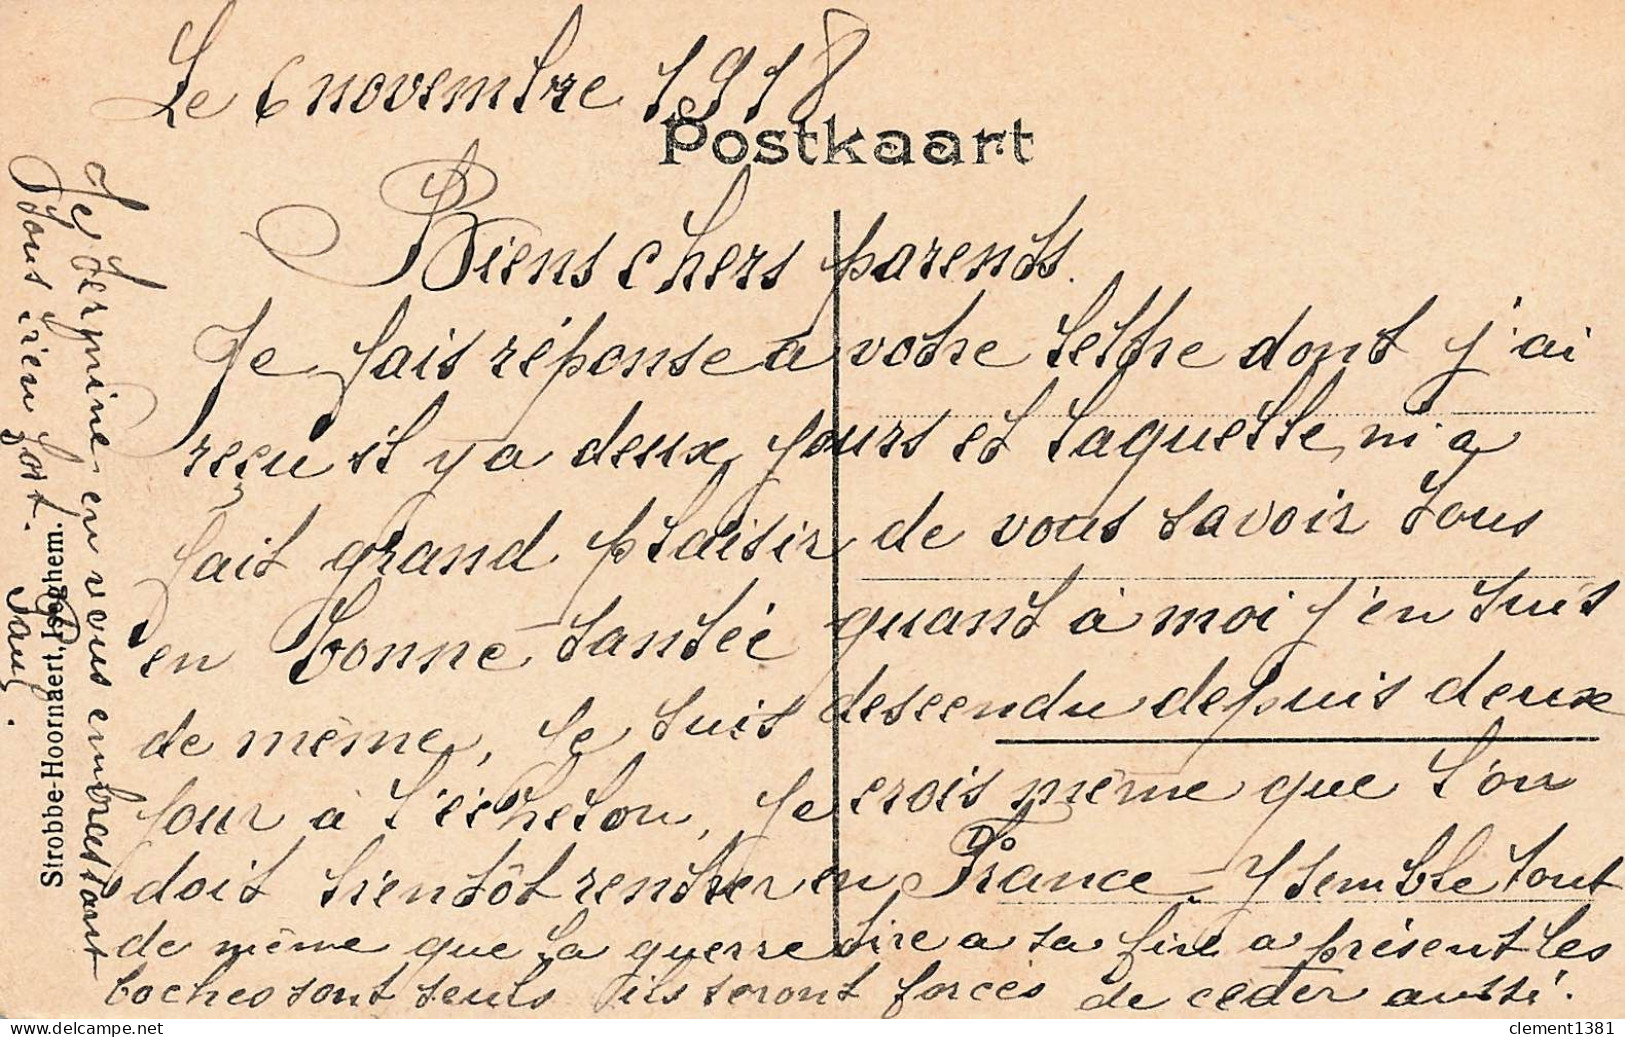 Le 6 novembre 1918
Postkaart
Biens chers parents.
Je fais réponse a votre lettre dont j'ai
reçu il y a deux jours et laquelle m'a
fait grand plaisir de vous savoir tous
en bonne santée quant à moi j'en suis
de même, je suis descendu depuis deux
jour à l'échelon, je crois même que l'on
doit bientôt rentrer en France. Y semble tout
de même que la guerre tire a sa fin a présent les
boches sont seuls ils seront forcés de ceder aussi.
Je termine en vous embrassant
tous bien fort.
Paul.
Strobbe-Hoornaert, Iseghem.
clement1381